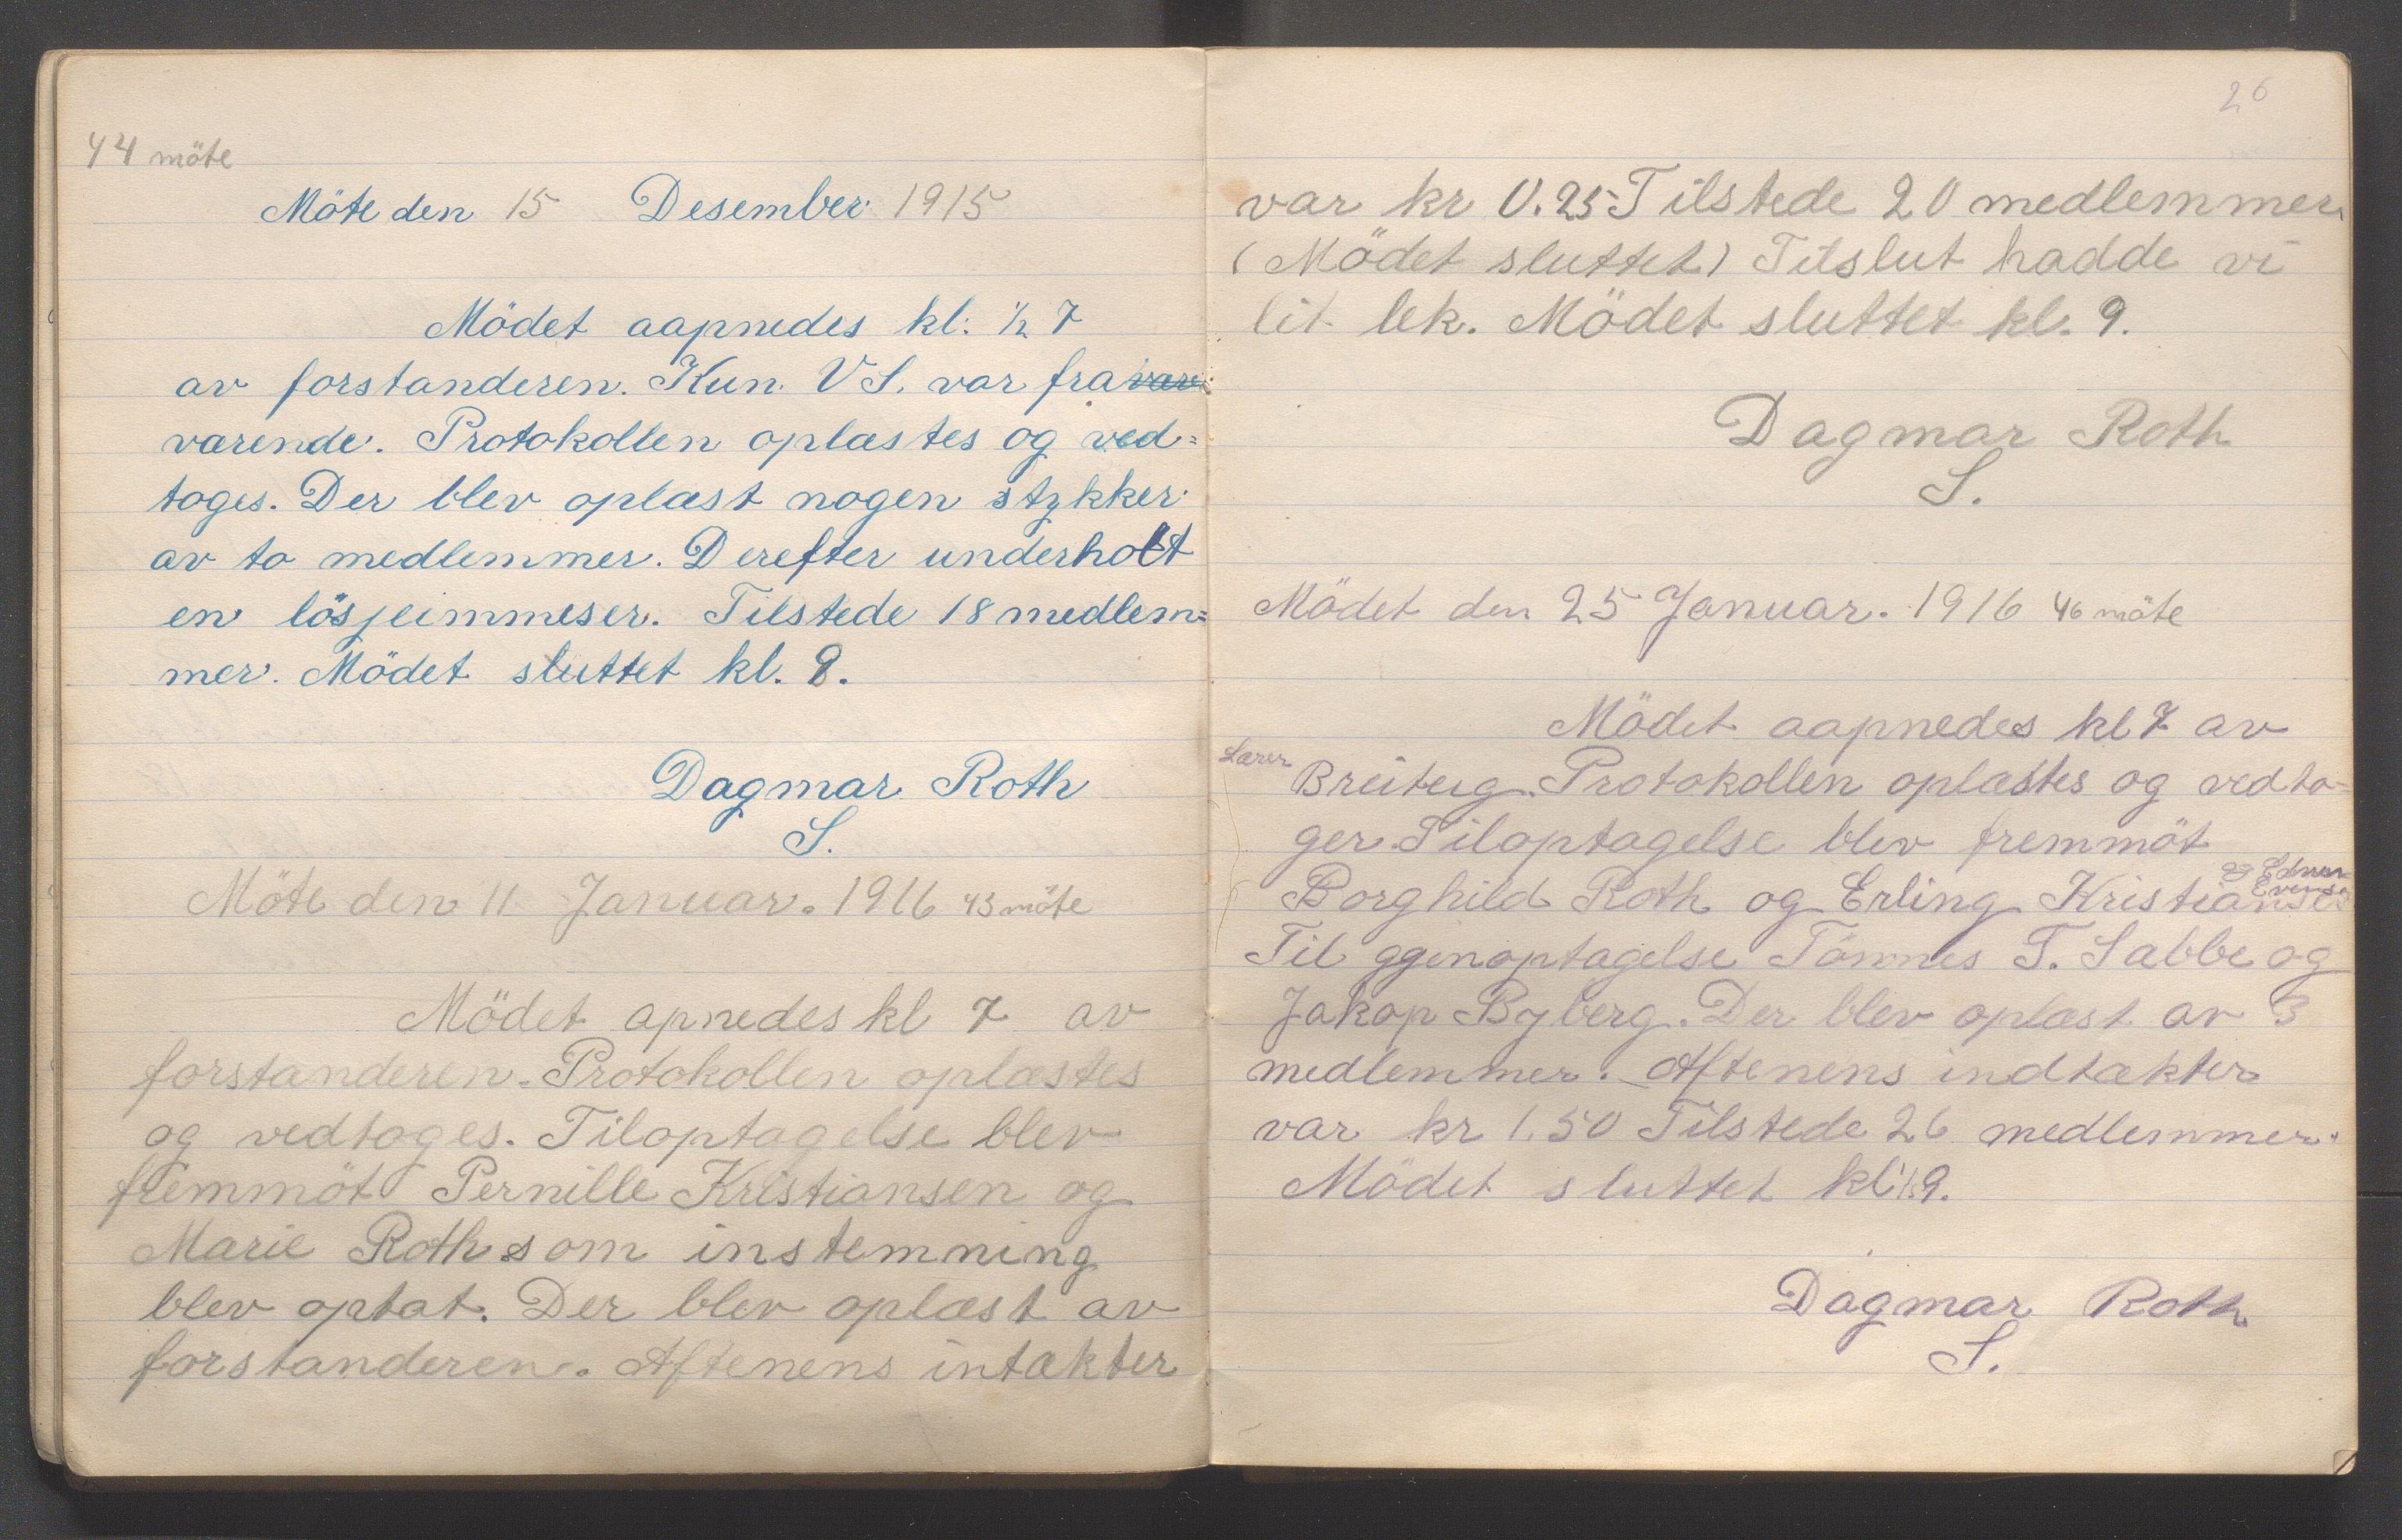 44 möte
Möte den 15 Desember 1915
Mödet aapnedes kl: ½ 7
av forstanderen. Kun. V S. var fra
værende. Protokollen oplæstes og ved=
toges. Der blev oplæst nogen stykker
av to medlemmer. Derefter underholt
en Tilstede 18 medlem=
mer. Mödet sluttet kl. 9.
Dagmar Roth
S.
Möte den 11 Januar. 1916 45 möte
Mödet apnedes kl 7 av
forstanderen. Protokollen oplæstes
og vedtoges. Tiloptagelse blev
fremmöt Pernille Kristiansen og
Marie Roth som instemning
blev optat. Der blev oplæst av
forstanderen. Aftenens intækter
26
var kr 0.25 Tilstede 20 medlemmer.
(Mödet sluttet) Tilslut hadde vi
lit lek. Mödet sluttet kl. 9.
Dagmar Roth
S.
Mödet den 25 Januar. 1916 46 möte
Mödet aapnedes kl 7 av
Lærer
Protokollen oplæstes og vedto=
ger. Tiloptagelse blev fremmöt
og Edmun
Evensen
Borghild Roth og Erling Kristiansen
Til ggenoptagelse Tönnes T. Sabbe og
Jakop Byberg. Der blev oplæst av 3
medlemmer. Aftenens indtækter
var kr 1.50 Tilstede 26 medlemmer.
Mödet sluttet kl ½9.
Dagmar Roth
S.